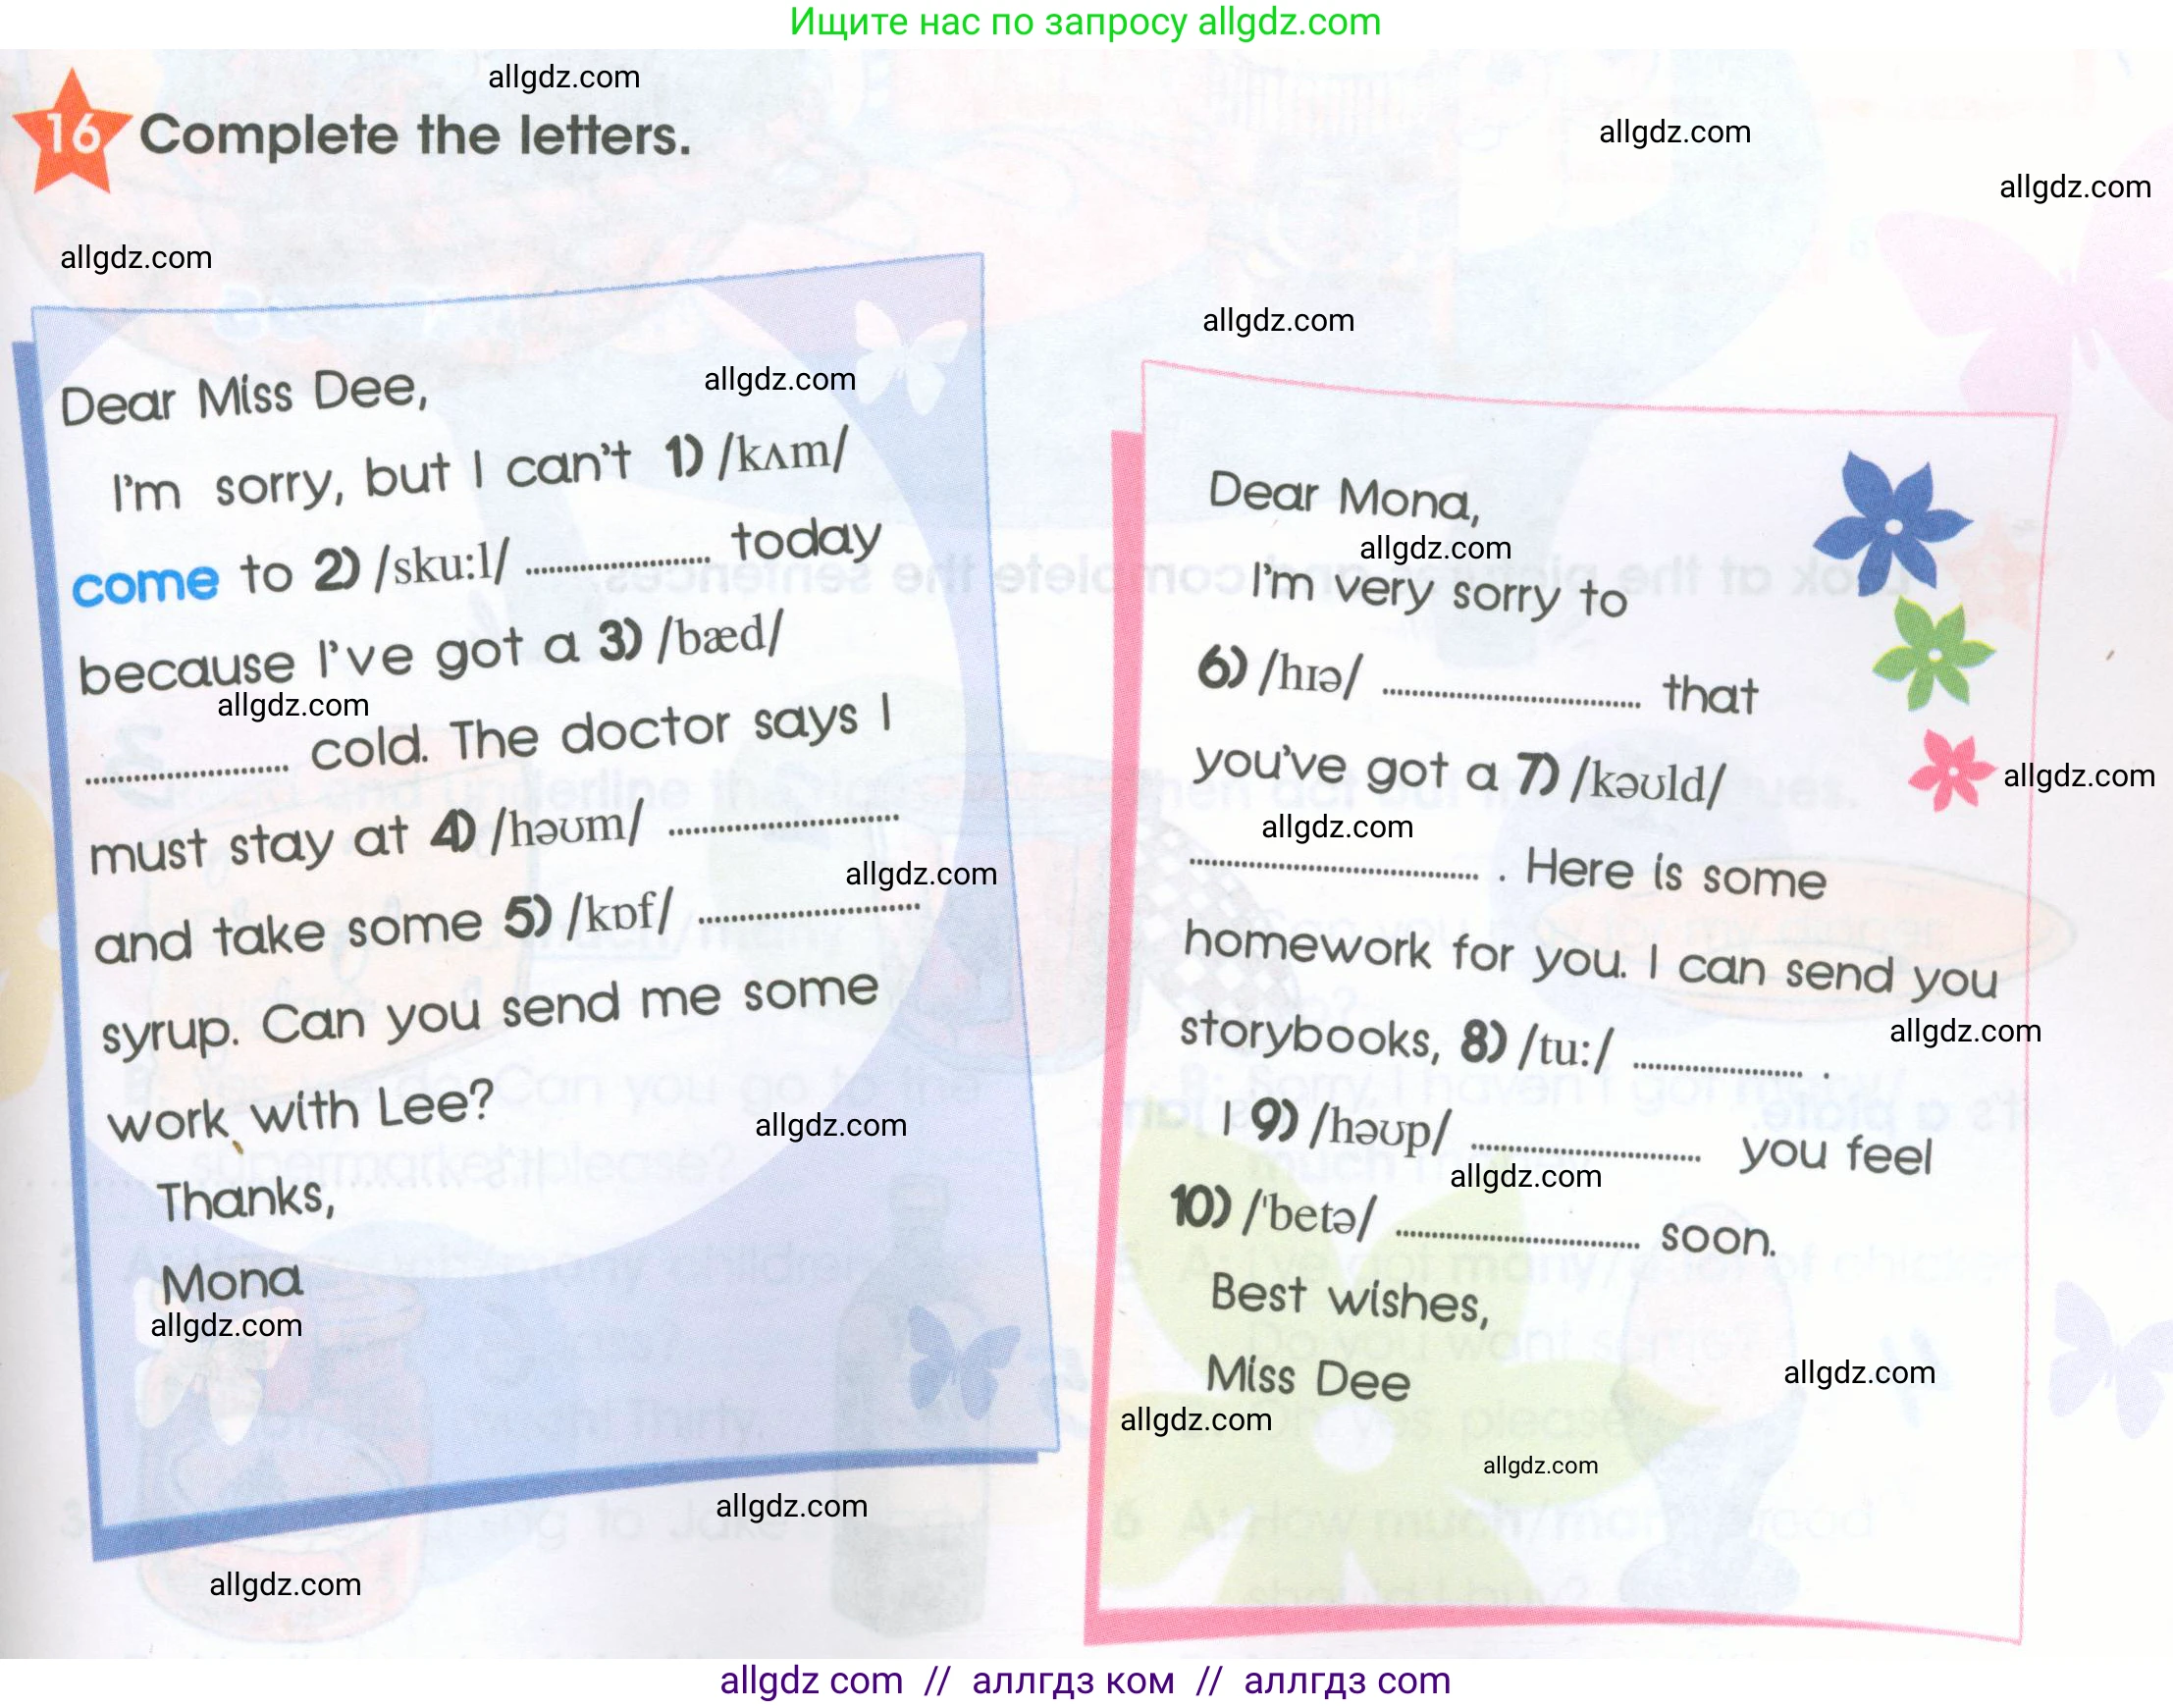 Ищите нас по запросу allgdz.com
allgdz.com
16 Complete the letters.
allgdz.com
allgdz.com
allgdz.com
allgdz.com
Dear Miss Dee,
allgdz.com
I'm sorry, but I can't 1) /kʌm/
come to 2) /sku:l/ .................... today
because I've got a 3) /bæd/
allgdz.com
.................... cold. The doctor says I
must stay at 4) /həʊm/ ....................
allgdz.com
and take some 5) /kɒf/ ....................
syrup. Can you send me some
work with Lee?
allgdz.com
Thanks,
Mona
allgdz.com
allgdz.com
allgdz.com
Dear Mona,
allgdz.com
I'm very sorry to
6) /hɪə/ .................... that
you've got a 7) /kəʊld/
allgdz.com
allgdz.com
.................... . Here is some
homework for you. I can send you
allgdz.com
storybooks, 8) /tu:/ .................... .
I 9) /həʊp/ .................... you feel
allgdz.com
10) /ˈbetə/ .................... soon.
Best wishes,
Miss Dee
allgdz.com
allgdz.com
allgdz.com
allgdz com // аллгдз ком // аллгдз com